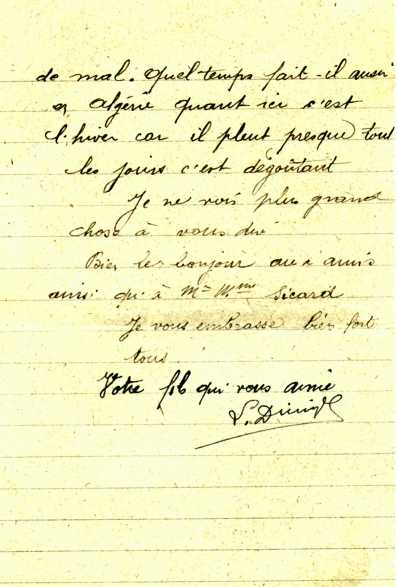 de mal. Quel temps fait-il aussi
en Algérie quant ici c'est
l'hiver car il pleut presque tout
les jours c'est dégoutant
Je ne vois plus grand
chose à vous dire
Bien les bonjour aux amis
ainsi qu'à Mr Mme Sicard
Je vous embrasse bien fort
tous
Votre fils qui vous aime